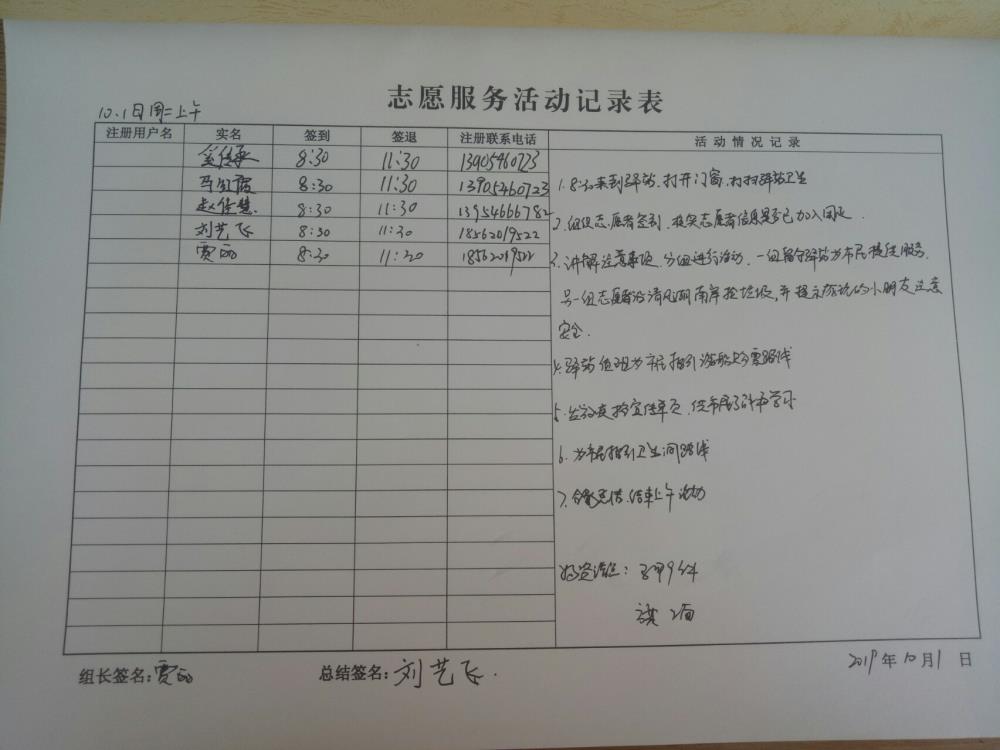 志愿服务活动记录表
10.1日周二上午
注册用户名 实名 签到 签退 注册联系电话 活动情况记录
8:30 11:30 13905460723
8:30 11:30 13905460723
赵佳慧 8:30 11:30 13954666782
刘艺飞 8:30 11:30 18562019522
贾丽 8:30 11:20 18562019522
1. 8:30来到驿站,打开门窗,打扫驿站卫生
2. 组织志愿者签到,核实志愿者信息是否已加入团队.
3. 讲解注意事项,分组进行活动,一组留守驿站为市民提供服务.
另一组志愿者沿清风湖南岸捡垃圾,并提示游玩的小朋友注意
安全.
4. 驿站值班为市民指引游船售票路线
5. 发放宣传单页,供市民学习
6. 为市民指引卫生间路线
7. 合影,结束上午活动
物资清点:马甲9件
旗2面
组长签名:贾丽 总结签名:刘艺飞.
2019年10月1日